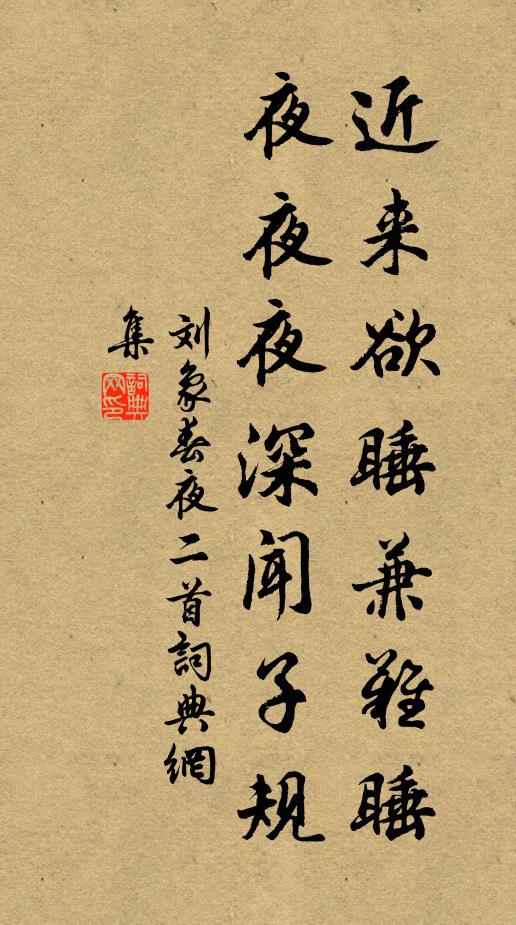 近来欲睡兼难睡
夜夜夜深闻子规
刘象春夜二首詞典網
集
詞典網印